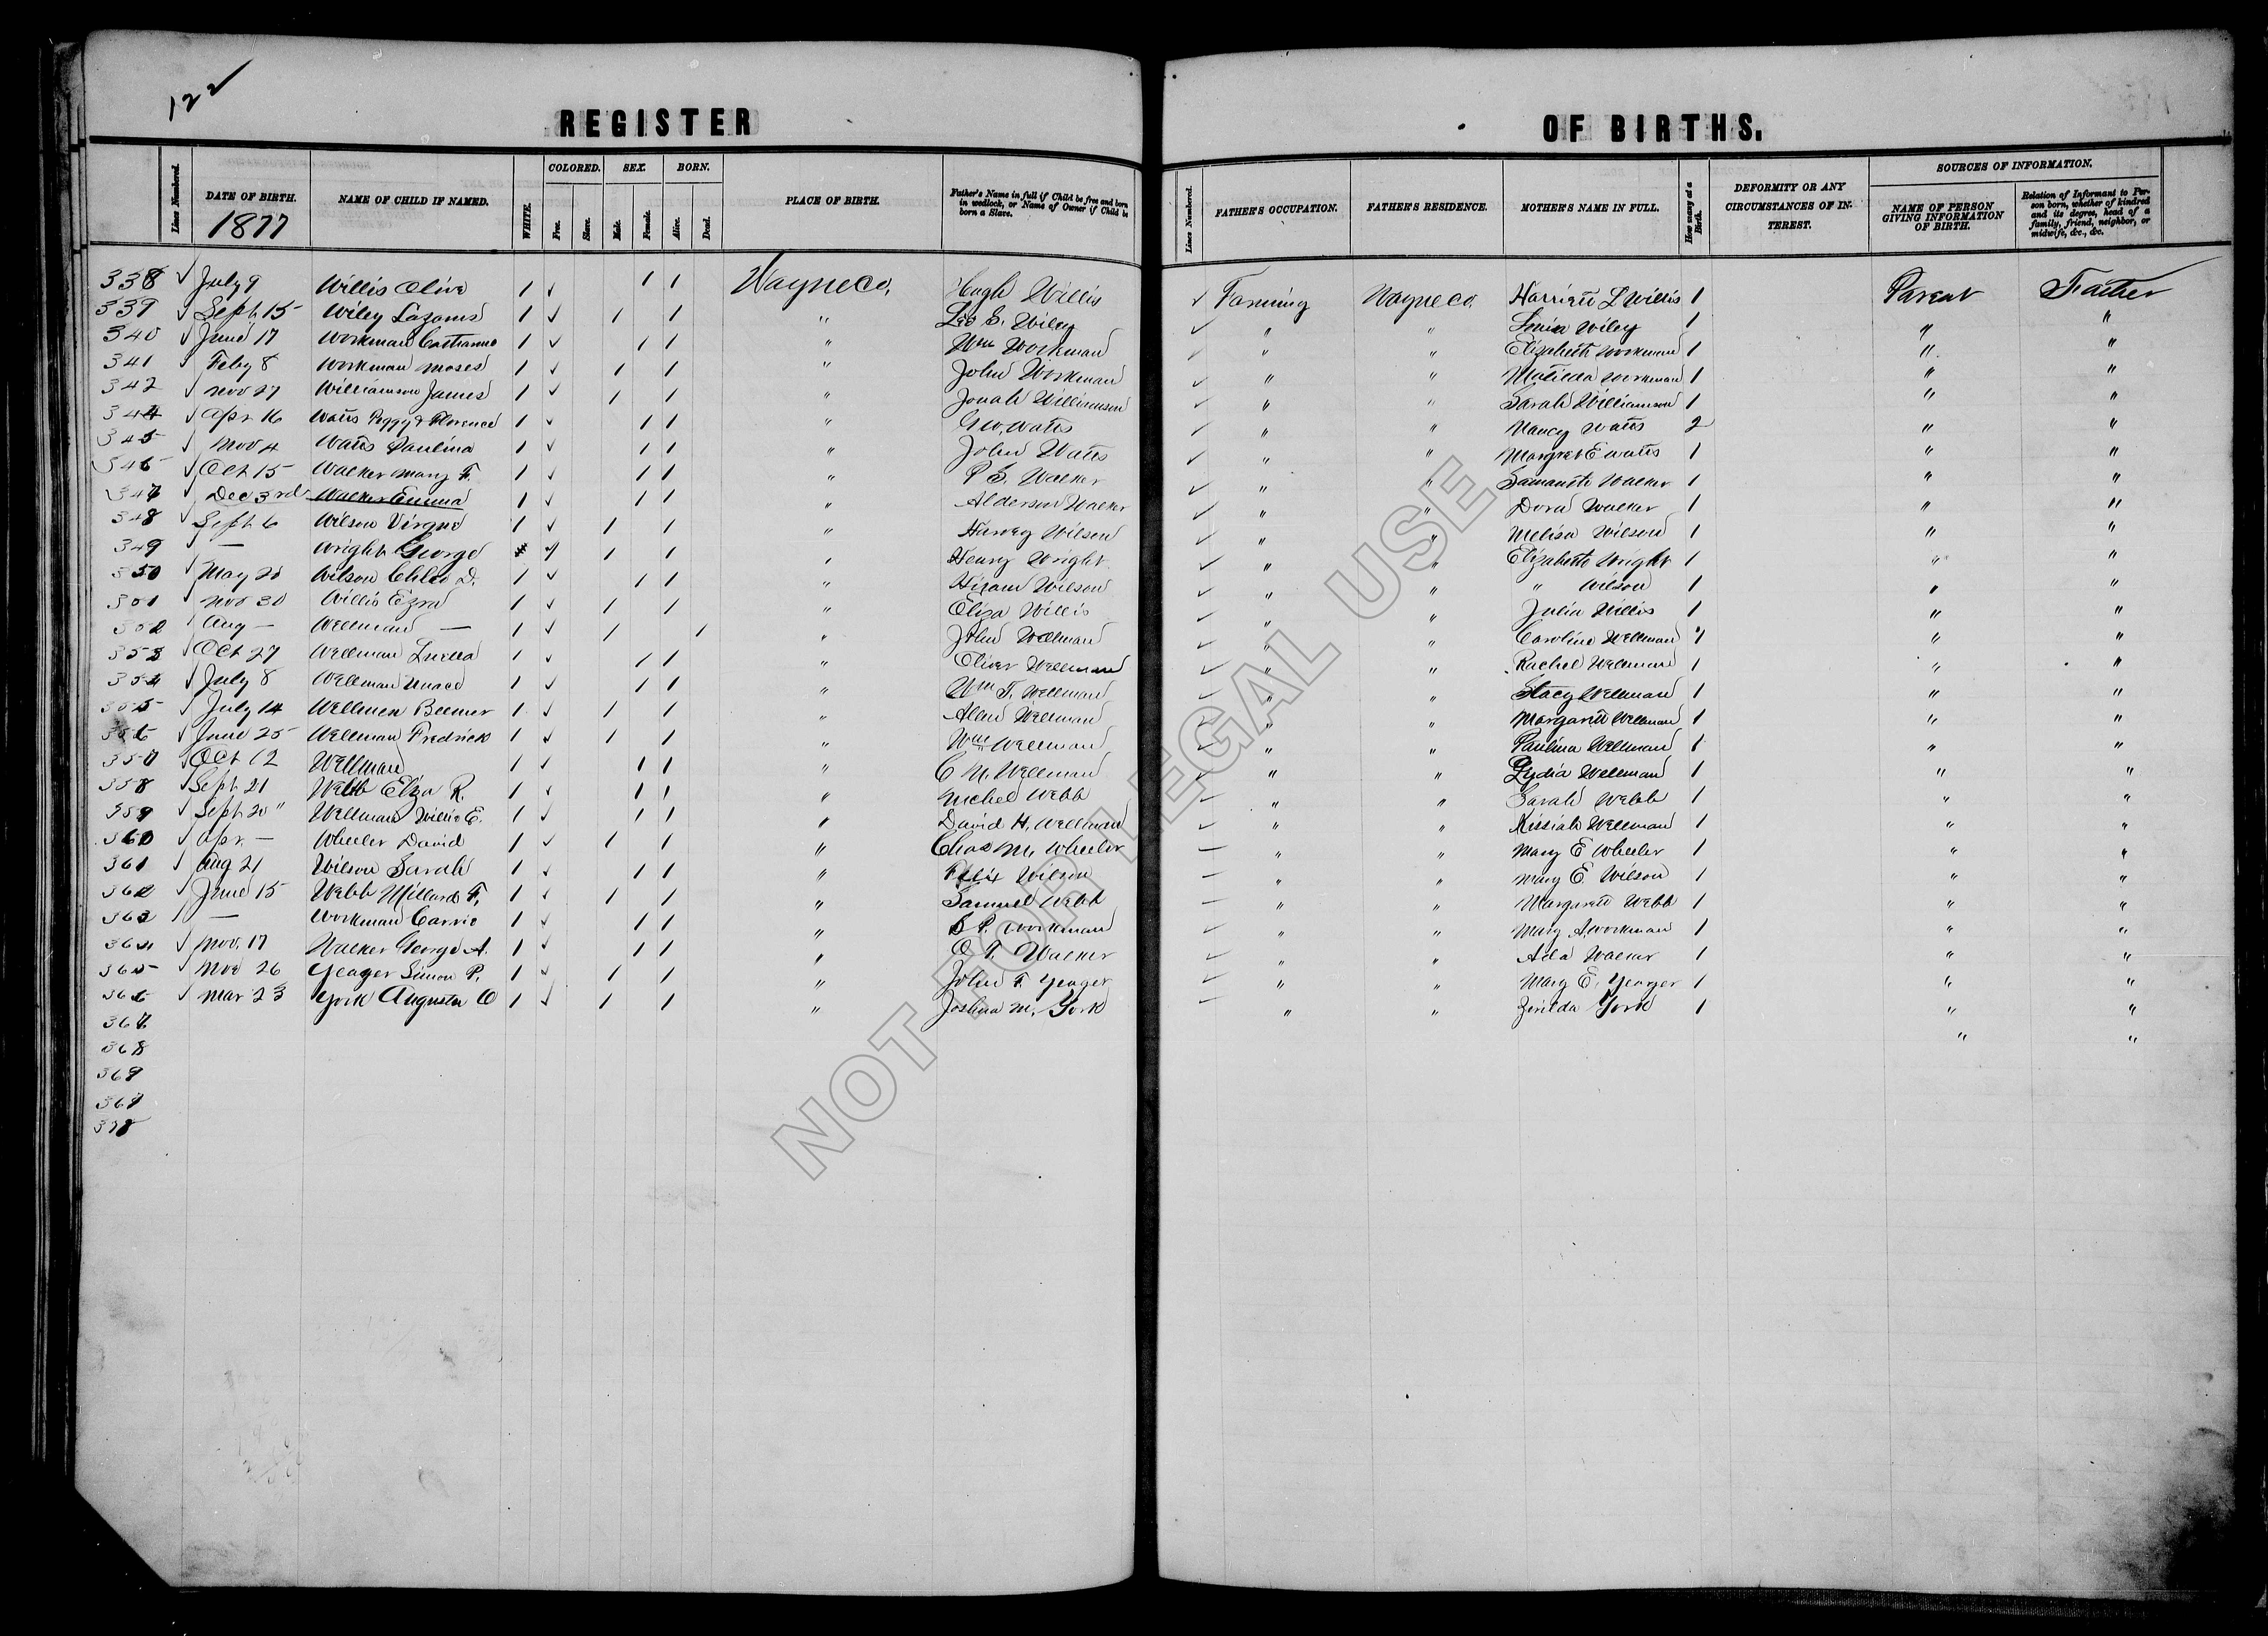 122
REGISTER OF BIRTHS.
Lines Numbered. DATE OF BIRTH. 1877 NAME OF CHILD IF NAMED. WHITE. COLORED. Free. Slave. SEX. Male. Female. BORN. Alive. Dead. PLACE OF BIRTH. Father's Name in full if Child be free and born in wedlock, or Name of Owner if Child be born a Slave. Lines Numbered. FATHER'S OCCUPATION. FATHER'S RESIDENCE. MOTHER'S NAME IN FULL. How many at a Birth. DEFORMITY OR ANY CIRCUMSTANCES OF INTEREST. SOURCES OF INFORMATION. NAME OF PERSON GIVING INFORMATION OF BIRTH. Relation of Informant to Person born, whether of kindred and its degree, head of a family, friend, neighbor, or midwife, &c., &c.
338 ✓ July 9 Willis Olive 1 ✓ 1 1 Wayne Co. Hugh Willis ✓ Farming Wayne Co Harriett L Willis 1 Parent Father
339 ✓ Sept 15 Wiley 1 ✓ 1 1 " Wiley ✓ " " Wiley 1 " "
340 ✓ June 17 Workman 1 ✓ 1 1 " Wm Workman ✓ " " Elizabeth Workman 1 " "
341 ✓ Feby 8 Workman Moses 1 ✓ 1 1 " John Workman ✓ " " Matilda Workman 1 " "
342 ✓ Nov 27 Williamson James 1 ✓ 1 1 " Jonah Williamson ✓ " " Sarah Williamson 1 " "
344 ✓ Apr 16 Watts Peggy & Florence 1 ✓ 1 1 " Geo. Watts ✓ " " Nancy Watts 2 " "
345 ✓ Nov 4 Watts Paulina 1 ✓ 1 1 " John Watts ✓ " " Margret E Watts 1 " "
346 ✓ Oct 15 Walker Mary F. 1 ✓ 1 1 " P S. Walker ✓ " " Samanth Walker 1 " "
347 ✓ Dec 3rd Walker Emma 1 ✓ 1 1 " Alderson Walker ✓ " " Dora Walker 1 " "
348 ✓ Sept 6 Wilson Virgne 1 ✓ 1 1 " Harvey Wilson ✓ " " Melisa Wilson 1 " "
349 ✓ — Wright George 1 1 1 " Henry Wright ✓ " " Elizabeth Wright 1 " "
350 ✓ May 20 Wilson Chloe D. 1 ✓ 1 1 " Hiram Wilson ✓ " " " Wilson 1 " "
351 ✓ Nov 30 Willis Ezra 1 ✓ 1 1 " Eliza Willis ✓ " " Julia Willis 1 " "
352 ✓ Aug — Wellman — 1 ✓ 1 1 " John Wellman ✓ " " Caroline Wellman 1 " "
353 ✓ Oct 27 Wellman Luella 1 ✓ 1 1 " Oliver Wellman ✓ " " Rachel Wellman 1 " "
354 ✓ July 8 Wellman 1 ✓ 1 1 " Wm T. Wellman ✓ " " Stacy Wellman 1 " "
355 ✓ July 14 Wellmen Beemer 1 ✓ 1 1 " Allen Wellman ✓ " " Margarett Wellman 1 " "
356 ✓ June 25 Wellman Fredrick 1 ✓ 1 1 " Wm Wellman ✓ " " Paulina Wellman 1 " "
357 ✓ Oct 12 Wellman 1 ✓ 1 1 " C M. Wellman ✓ " " Lydia Wellman 1 " "
358 ✓ Sept. 21 Webb Eliza R. 1 ✓ 1 1 " Michel Webb ✓ " " Sarah Webb 1 " "
359 ✓ Sept 20 " Wellman Willie E. 1 ✓ 1 1 " David H. Wellman ✓ " " Kissiah Wellman 1 " "
360 ✓ Apr. — Wheeler David 1 ✓ 1 1 " Chas M. Wheeler ✓ " " Mary E Wheeler 1 " "
361 ✓ Aug 21 Wilson Sarah 1 ✓ 1 1 " Felix Wilson ✓ " " Mary E. Wilson 1 " "
362 ✓ June 15 Webb Millard F. 1 ✓ 1 1 " Samuel Webb ✓ " " Margarett Webb 1 " "
363 ✓ — Workman Carrie 1 ✓ 1 1 " P. Workman ✓ " " Mary A. Workman 1 " "
364 ✓ Nov. 17 Walker George A. 1 ✓ 1 1 " O T. Walker ✓ " " Ada Walker 1 " "
365 ✓ Nov 26 Yeager Simon P. 1 ✓ 1 1 " John F. Yeager ✓ " " Mary E. Yeager 1 " "
366 ✓ Mar 23 York Augustu O 1 ✓ 1 1 " Joshua M. York ✓ " " Zerilda York 1 " "
367 " "
368
369
369
378
NOT FOR LEGAL USE